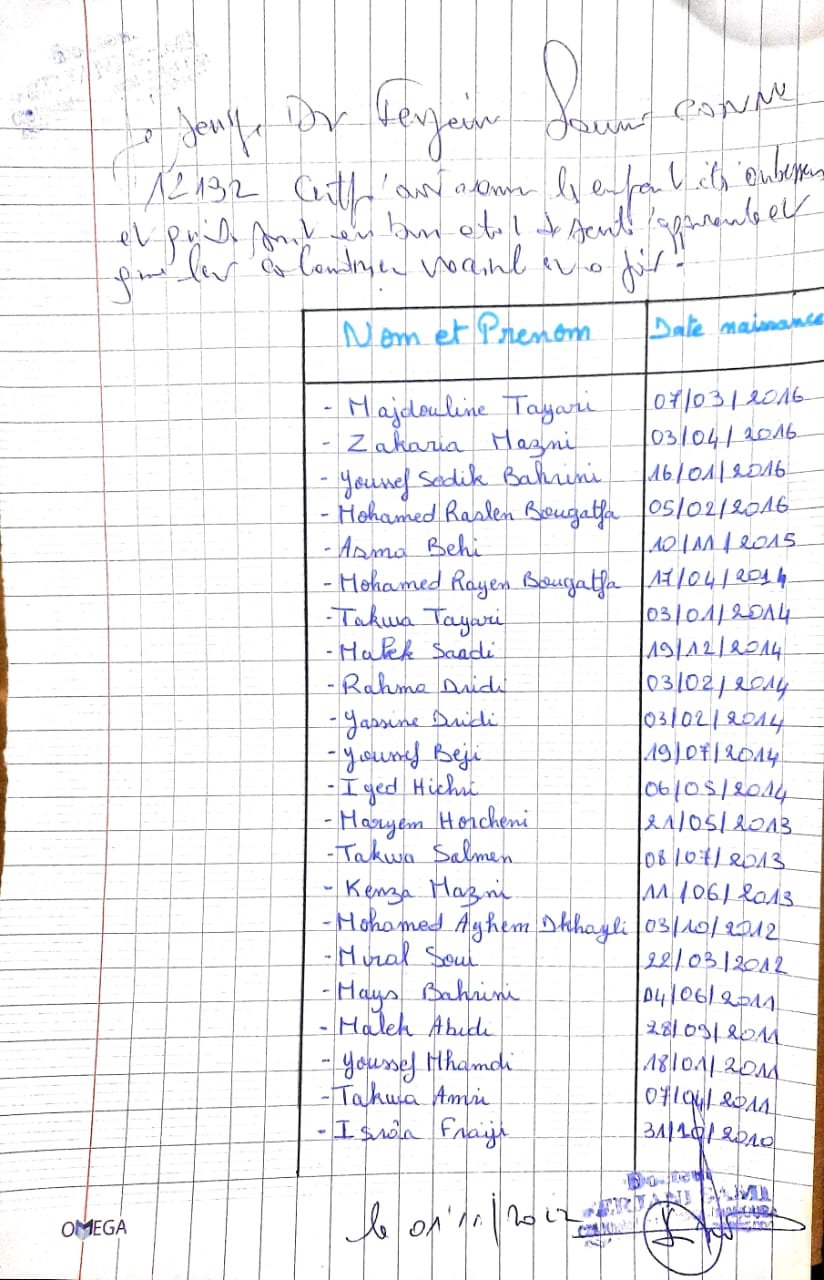 Dr
12192 les enfants
et qu'ils sont en bon
Nom et Prenom Date naissance
- Majdouline Tayari 07/03/2016
- Zakaria Mazni 03/04/2016
- Youssef Sadik Bahrini 16/01/2016
- Mohamed Raslen Bougatfa 05/02/2016
- Asma Behi 10/11/2015
- Mohamed Rayen Bougatfa 17/04/2014
- Takwa Tayari 03/01/2014
- Malek Saadi 19/12/2014
- Rahma Dridi 03/02/2014
- Yassine Dridi 03/02/2014
- Youssef Beji 19/07/2014
- Iyed Hichri 06/05/2014
- Maryem Horcheni 21/05/2013
- Takwa Salmen 08/07/2013
- Kenza Mazni 11/06/2013
- Mohamed Ayhem Dkhayli 03/10/2012
- Miral Soui 22/03/2012
- Mays Bahrini 04/06/2011
- Malek Abidi 28/09/2011
- Youssef Mhamdi 18/01/2011
- Takwa Amri 07/04/2011
- Isråa Fraiji 31/10/2010
le 01/11/2022
OMEGA